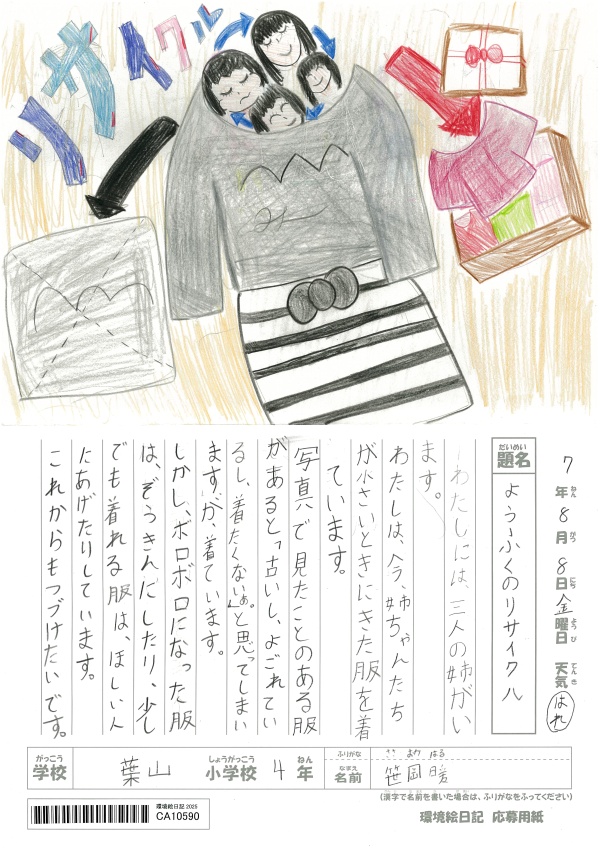 リサイクル
7年8月8日金曜日 天気 はれ
ねん がつ にち ようび てんき
だいめい
題名
ようふくのリサイクル
わたしには、三人の姉がい
ます。
わたしは、今、姉ちゃんたち
が小さいときにきた服を着
ています。
写真で見たことのある服
があると「古いし、よごれてい
るし、着たくないなぁ。」と思ってしまい
ますが、着ています。
しかし、ボロボロになった服
は、ぞうきんにしたり、少し
でも着れる服は、ほしい人
にあげたりしています。
これからもつづけたいです。
がっこう しょうがっこう ねん
学校 葉山 小学校 4年
ふりがな ささ おか はる
なまえ
名前 笹岡 暖
(漢字で名前を書いた場合は、ふりがなをふってください)
環境絵日記 2025
CA10590
環境絵日記 応募用紙